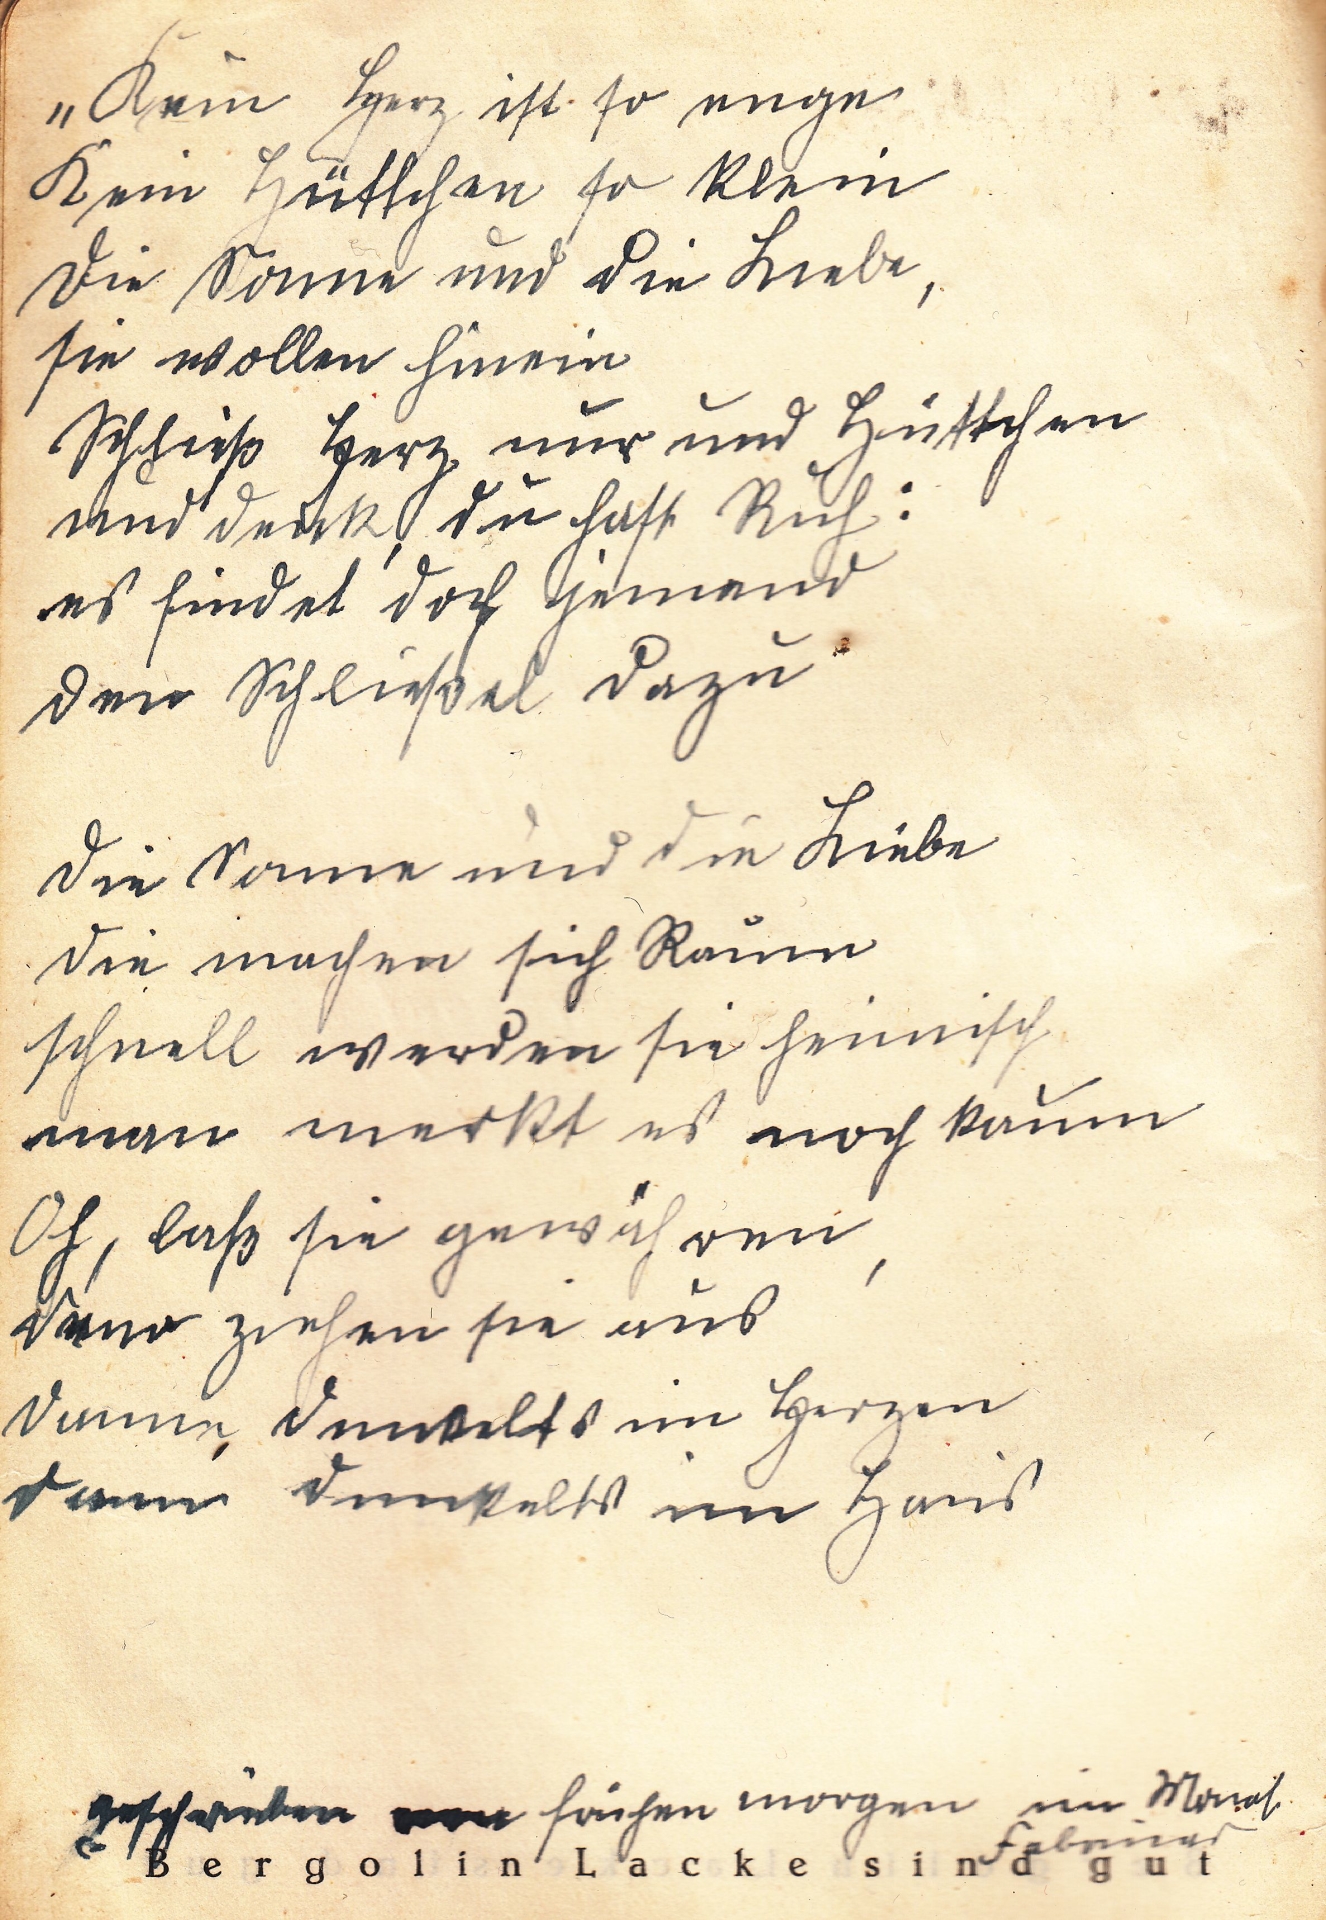 „Kein Herz ist so enge
Kein Hüttchen so klein
Die Sonne und die Liebe,
sie wollen hinein
Schließ Herz nur und Hüttchen
und denk, du hast Ruh:
es findet doch jemand
den Schließel dazu
Die Sonne und die Liebe
die machen sich Raum
schnell werden sie heimisch
man merkt es noch kaum
Oh, laß sie gewähren,
denn ziehen sie aus
dann, dunkelts im Herzen
dann dunkelts im Haus
geschrieben frühen morgen im Monat
Februar
Bergolin Lacke sind gut